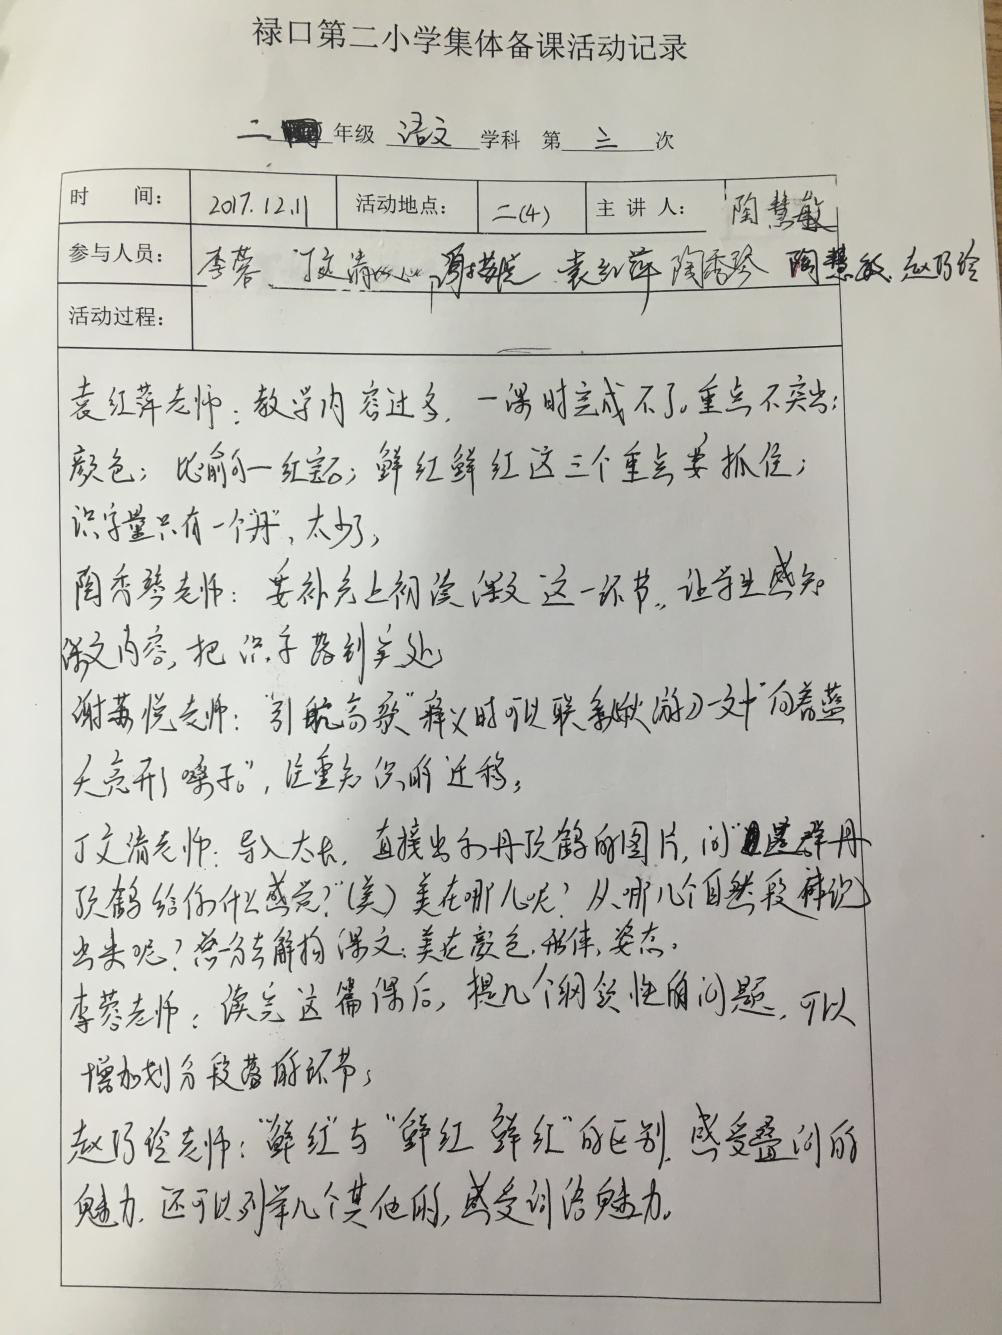 禄口第二小学集体备课活动记录
二 年级 语文 学科 第 三 次
时 间: 2017.12.11 活动地点: 二(4) 主 讲 人: 陶慧敏
参与人员: 李蓉 丁文清 谢苗悦 袁红萍 陶秀琴 陶慧敏 赵巧玲
活动过程:
袁红萍老师:教学内容过多,一课时完成不了。重点不突出:
颜色;比喻句—红宝石;鲜红鲜红这三个重点要抓住;
识字量只有一个“丹”、太少了;
陶秀琴老师:要补充上初读课文这一环节,让学生感知
课文内容,把识字落到实处
谢苗悦老师:“引吭高歌”释义时可以联系《秋游》一文中“向着蓝
天亮开了嗓子。”,注重知识的迁移。
丁文清老师:导入太长,直接出示丹顶鹤的图片,问“这群丹
顶鹤给你什么感觉?”(美)美在哪儿呢?从哪几个自然段
出来呢?总分去解构课文:美在颜色、形体、姿态。
李蓉老师:读完这篇课后,提几个纲领性的问题,可以
增加划分段落的环节;
赵巧玲老师:“鲜红”与“鲜红 鲜红”的区别,感受叠词的
魅力,还可以列举几个其他的,感受词语魅力。